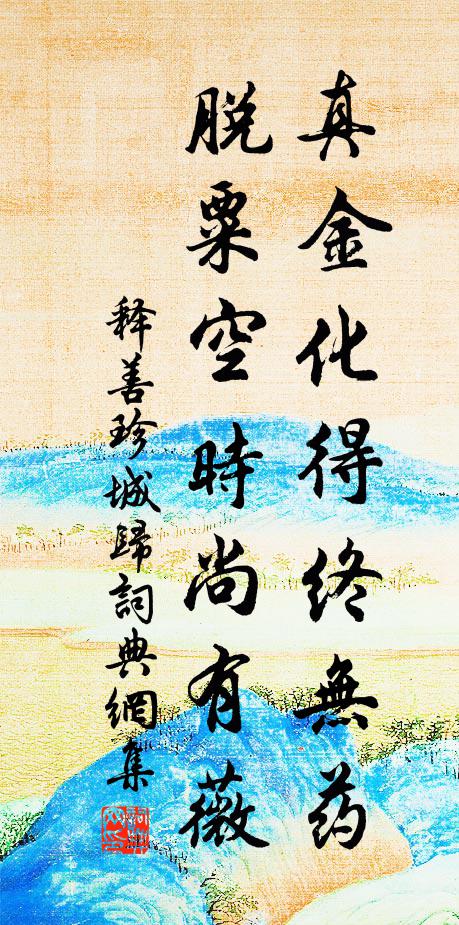 真金化得终無药
脱粟空時尚有薇
释善珍城歸詞典網集